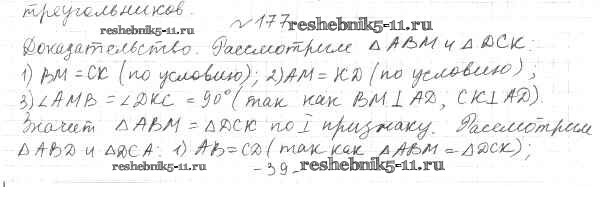 треугольников.
№177 reshebnik5-11.ru
Доказательство. Рассмотрим △ABM и △DCK:
reshebnik5-11.ru
1) BM=CK (по условию); 2) AM=KD (по условию);
3) ∠AMB=∠DKC=90° (так как BM⊥AD, CK⊥AD).
Значит △ABM=△DCK по I признаку. Рассмотрим
△ABD и △DCA: 1) AB=CD (так как △ABM=△DCK);
reshebnik5-11.ru -39- reshebnik5-11.ru